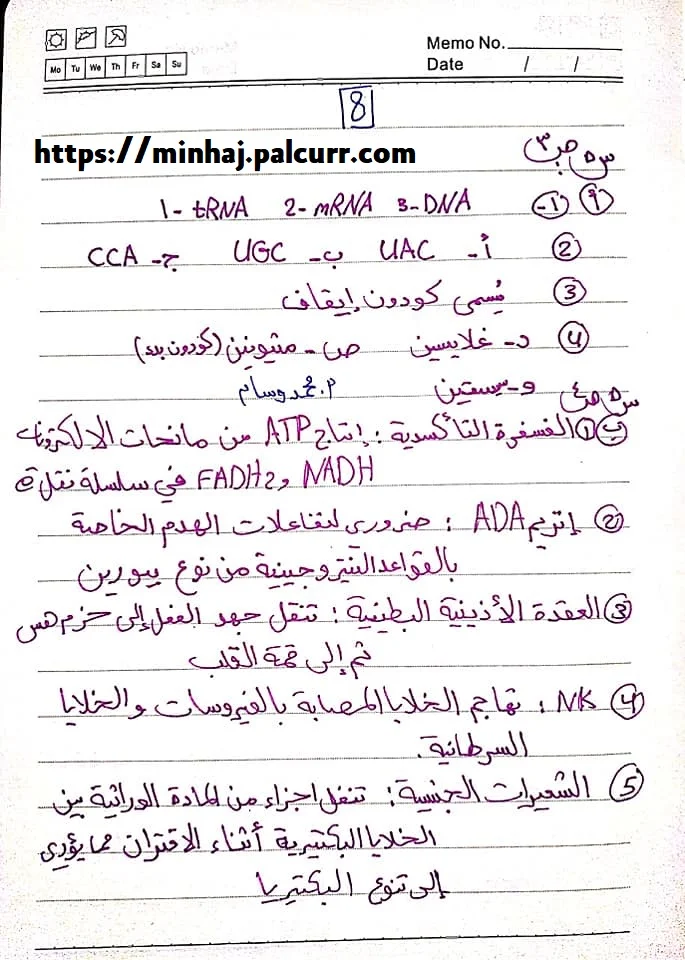 Memo No.
Mo Tu We Th Fr Sa Su
Date / /
8
https://minhaj.palcurr.com
س5 ص3
أ 1- 1- tRNA 2- mRNA 3- DNA
2 أ- UAC ب- UGC ج- CCA
3 يُسمى كودون إيقاف
4 د- غلايسين ص- مثيونين (كودون بدء)
و- سستين م. محمد وسام
س5 ص4
ب 1 الفسفرة التأكسدية : إنتاج ATP من مانحات الالكترونات
NADH و FADH2 في سلسلة نقل e
2 إنزيم ADA : ضروري لتفاعلات الهدم الخاصة
بالقواعد النيتروجينية من نوع بيورين
3 العقدة الأذينية البطينية : تنقل جهد الفعل إلى حزم هس
ثم إلى قمة القلب
4 NK : تهاجم الخلايا المصابة بالفيروسات والخلايا
السرطانية.
5 الشعيرات الجنسية : تنقل اجزاء من المادة الوراثية بين
الخلايا البكتيرية أثناء الاقتران مما يؤدي
إلى تنوع البكتيريا